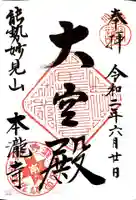 奉拝
令和二年六月廿日
大堂殿
能勢妙見山
本瀧寺